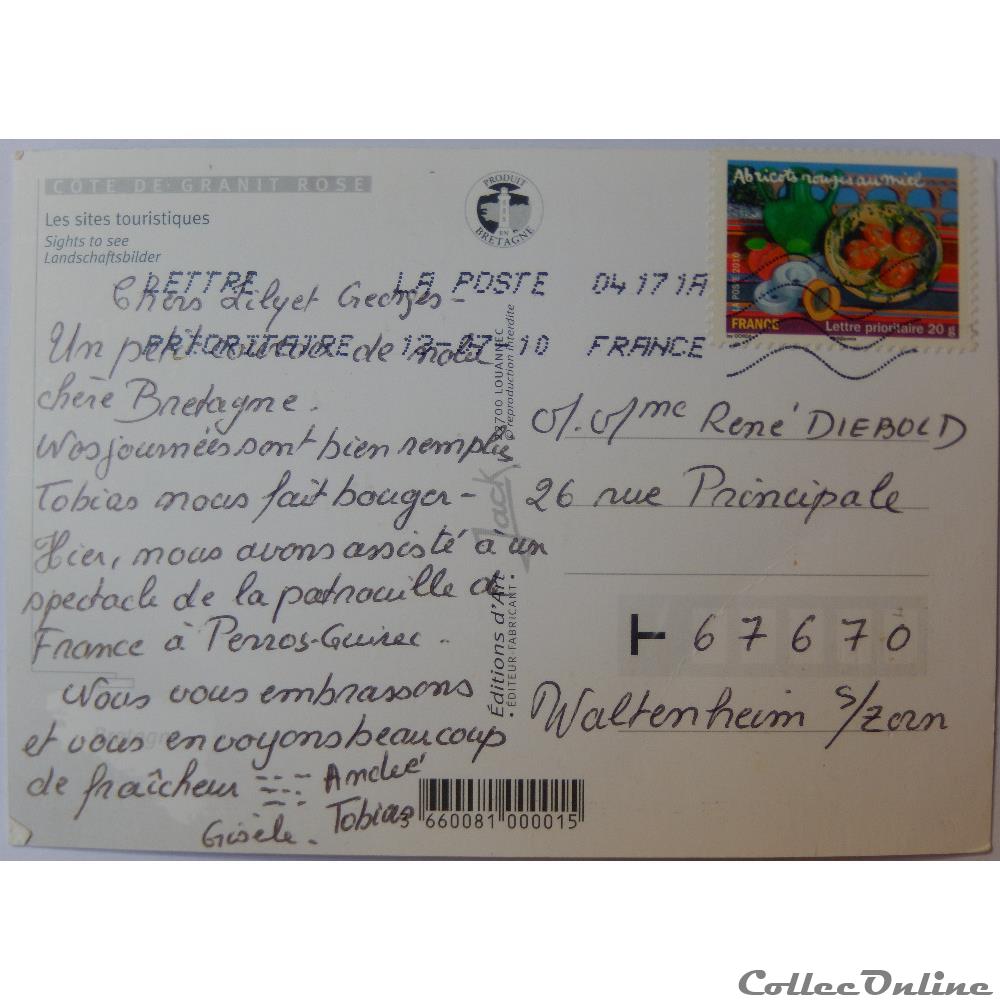 COTE DE GRANIT ROSE
Les sites touristiques
Sights to see
Landschaftsbilder
PRODUIT
EN
BRETAGNE
Abricots rouges au miel
LA POSTE 2010
FRANCE
Lettre prioritaire 20 g
LETTRE LA POSTE 04171A
PRIORITAIRE 13-07-10 FRANCE
Chers Lilyet Georges -
Un petit coucou de notre
chère Bretagne.
Nos journées sont bien remplies
Tobias nous fait bouger -
Hier, nous avons assisté à un
spectacle de la patrouille de
France à Perros-Guirec -
Nous vous embrassons
et vous envoyons beaucoup
de fraîcheur
André
Tobias
Gisèle.
Éditions d'Art
ÉDITEUR-FABRICANT
Jack
22700 LOUANNEC
© reproduction interdite
René DIEBOLD
26 rue Principale
67670
Waltenheim s/zorn
Bretagne
3 660081 000015
CollecOnline